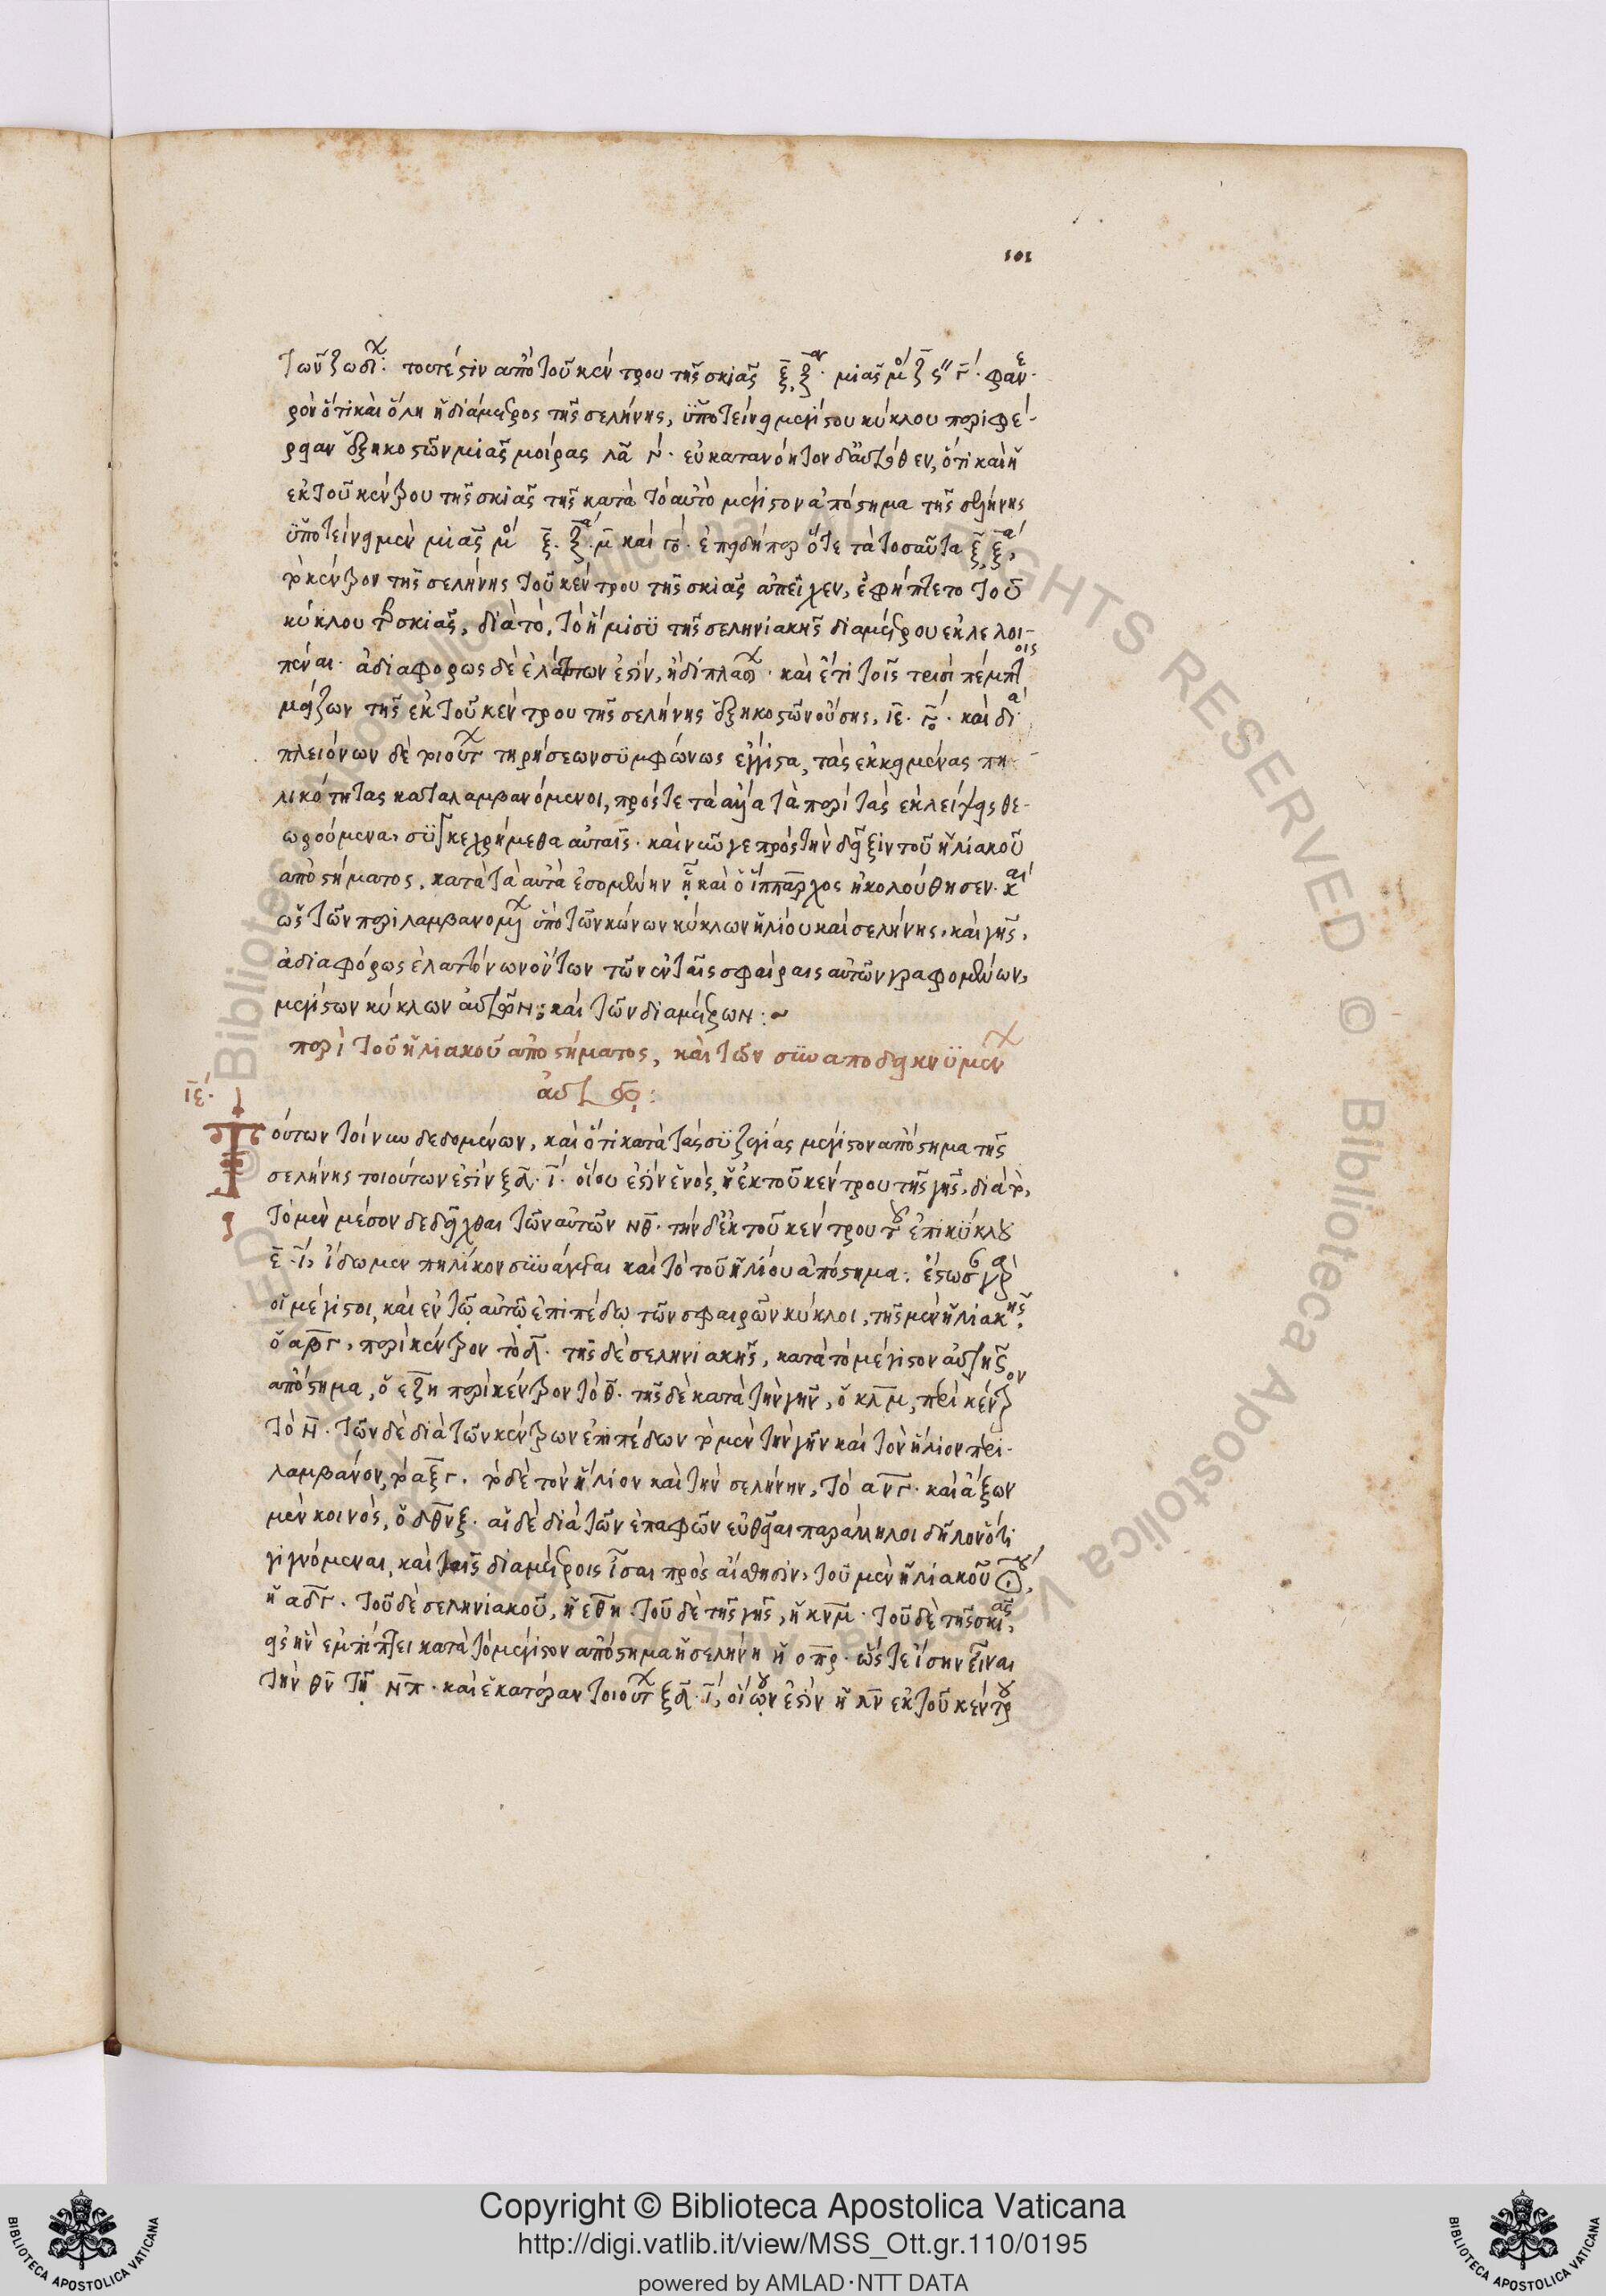 101
τῶν ζωδί τουτέστιν ἀπὸ τοῦ κέντρου τῆς σκιᾶς μιᾶς μο φανε
ρὸν ὅτι καὶ ὅλη ἡ διάμετρος τῆς σελήνης, ὑποτείνει μεγίστου κύκλου περιφέ-
ρειαν ἑξηκοστῶν μιᾶς μοίρας λα γ. εὐκατανόητον δ' αὐτόθεν, ὅτι καὶ ἡ
ἐκ τοῦ κέντρου τῆς σκιᾶς τῆς κατὰ τὸ αὐτὸ μέγιστον ἀπόστημα τῆς σελήνης
ὑποτείνει μὲν μιᾶς μο ξ. μ καὶ ἐπειδήπερ ὅτε τὰ τοσαῦτα
τὸ κέντρον τῆς σελήνης τοῦ κέντρου τῆς σκιᾶς ἀπεῖχεν, ἐφήπτετο τοῦ
κύκλου τῆς σκιᾶς, διὰ τὸ, τὸ ἥμισυ τῆς σεληνιακῆς διαμέτρου ἐκλελοι-
πέναι. ἀδιαφόρως δὲ ἐλάττων ἐστὶν, ἢ διπλασ. καὶ ἔτι τοῖς τρισὶ πέμπτοις
μείζων τῆς ἐκ τοῦ κέντρου τῆς σελήνης ἑξηκοστῶν οὔσης, ιε. καὶ δι
πλειόνων δὲ τοιούτ τηρήσεων συμφώνως ἔγγιστα, τὰς ἐκκειμένας πη-
λικότητας καταλαμβανόμενοι, πρός τε τὰ ἄλλα τὰ περὶ τὰς ἐκλείψεις θε-
ωρούμενα, συγκεχρήμεθα αὐταῖς. καὶ νῦν γε πρὸς τὴν δεῖξιν τοῦ ἡλιακοῦ
ἀποστήματος, κατὰ τὰ αὐτὰ ἐσομένην ᾗ καὶ ὁ ἵππαρχος ἠκολούθησεν. καὶ
ὡς τῶν περιλαμβανομ ὑπὸ τῶν κώνων κύκλων ἡλίου καὶ σελήνης, καὶ γῆς,
ἀδιαφόρως ἐλαττόνων ὄντων τῶν ἐν ταῖς σφαίραις αὐτῶν γραφομένων,
μεγίστων κύκλων αὐτῶν: καὶ τῶν διαμέτρων:~
περὶ τοῦ ἡλιακοῦ ἀποστήματος, καὶ τῶν συναποδεικνυμέν
αὐτῷ:
ιε
Τούτων τοίνυν δεδομένων, καὶ ὅτι κατὰ τὰς συζυγίας μέγιστον ἀπόστημα τῆς
σελήνης τοιούτων ἐστὶν ξδ. ι. οἵου ἐστὶν ἑνὸς, ἡ ἐκ τοῦ κέντρου τῆς γῆς, διὰ τὸ,
τὸ μὲν μέσον δεδεῖχθαι τῶν αὐτῶν νθ. τὴν δ' ἐκ τοῦ κέντρου τοῦ ἐπικύκλου
ε. ι, ἴδωμεν πηλίκον συνάγεται καὶ τὸ τοῦ ἡλίου ἀπόστημα: ἔστωσ γὰρ
οἱ μέγιστοι, καὶ ἐν τῷ αὐτῷ ἐπιπέδῳ τῶν σφαιρῶν κύκλοι, τῆς μὲν ἡλιακῆς,
ὁ αβγ, περὶ κέντρον τὸ δ. τῆς δὲ σεληνιακῆς, κατὰ τὸ μέγιστον αὐτῆς
ἀπόστημα, ὁ εζη περὶ κέντρον τὸ θ. τῆς δὲ κατὰ τὴν γῆν, ὁ κλμ, περὶ κέντρον
τὸ ν. τῶν δὲ διὰ τῶν κέντρων ἐπιπέδων τὸ μὲν τὴν γῆν καὶ τὸν ἥλιον περι-
λαμβάνον, τὸ αξγ. τὸ δὲ τὸν ἥλιον καὶ τὴν σελήνην, τὸ ανγ. καὶ ἄξων
μὲν κοινὸς, ὁ δθνξ. αἱ δὲ διὰ τῶν ἐπαφῶν εὐθεῖαι παράλληλοι δηλονότι
γιγνόμεναι, καὶ ταῖς διαμέτροις ἴσαι πρὸς αἴσθησιν, τοῦ μὲν ἡλιακοῦ
ἡ αδγ. τοῦ δὲ σεληνιακοῦ, ἡ εθη. τοῦ δὲ τῆς γῆς, ἡ κνμ. τοῦ δὲ τῆς σκιᾶς,
εἰς ἣν ἐμπίπτει κατὰ τὸ μέγιστον ἀπόστημα ἡ σελήνη ἡ οπρ. ὥστε ἴσην εἶναι
τὴν θν τῇ νπ. καὶ ἑκατέραν τοιούτ ξδ. ι, οἵων ἐστὶν ἡ λν ἐκ τοῦ κέντρου
Copyright © Biblioteca Apostolica Vaticana
http://digi.vatlib.it/view/MSS_Ott.gr.110/0195
powered by AMLAD·NTT DATA